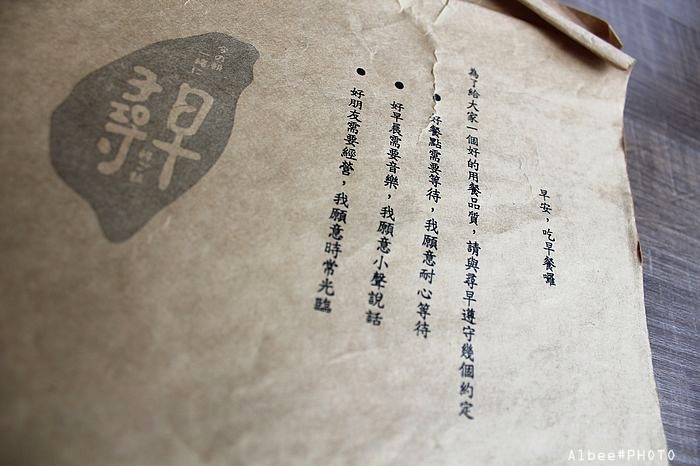 早安，吃早餐囉
為了給大家一個好的用餐品質，請與尋早遵守幾個約定
●好餐點需要等待，我願意耐心等待
●好早晨需要音樂，我願意小聲說話
●好朋友需要經營，我願意時常光臨
今の朝
一緒に
早
尋
Albee#PHOTO